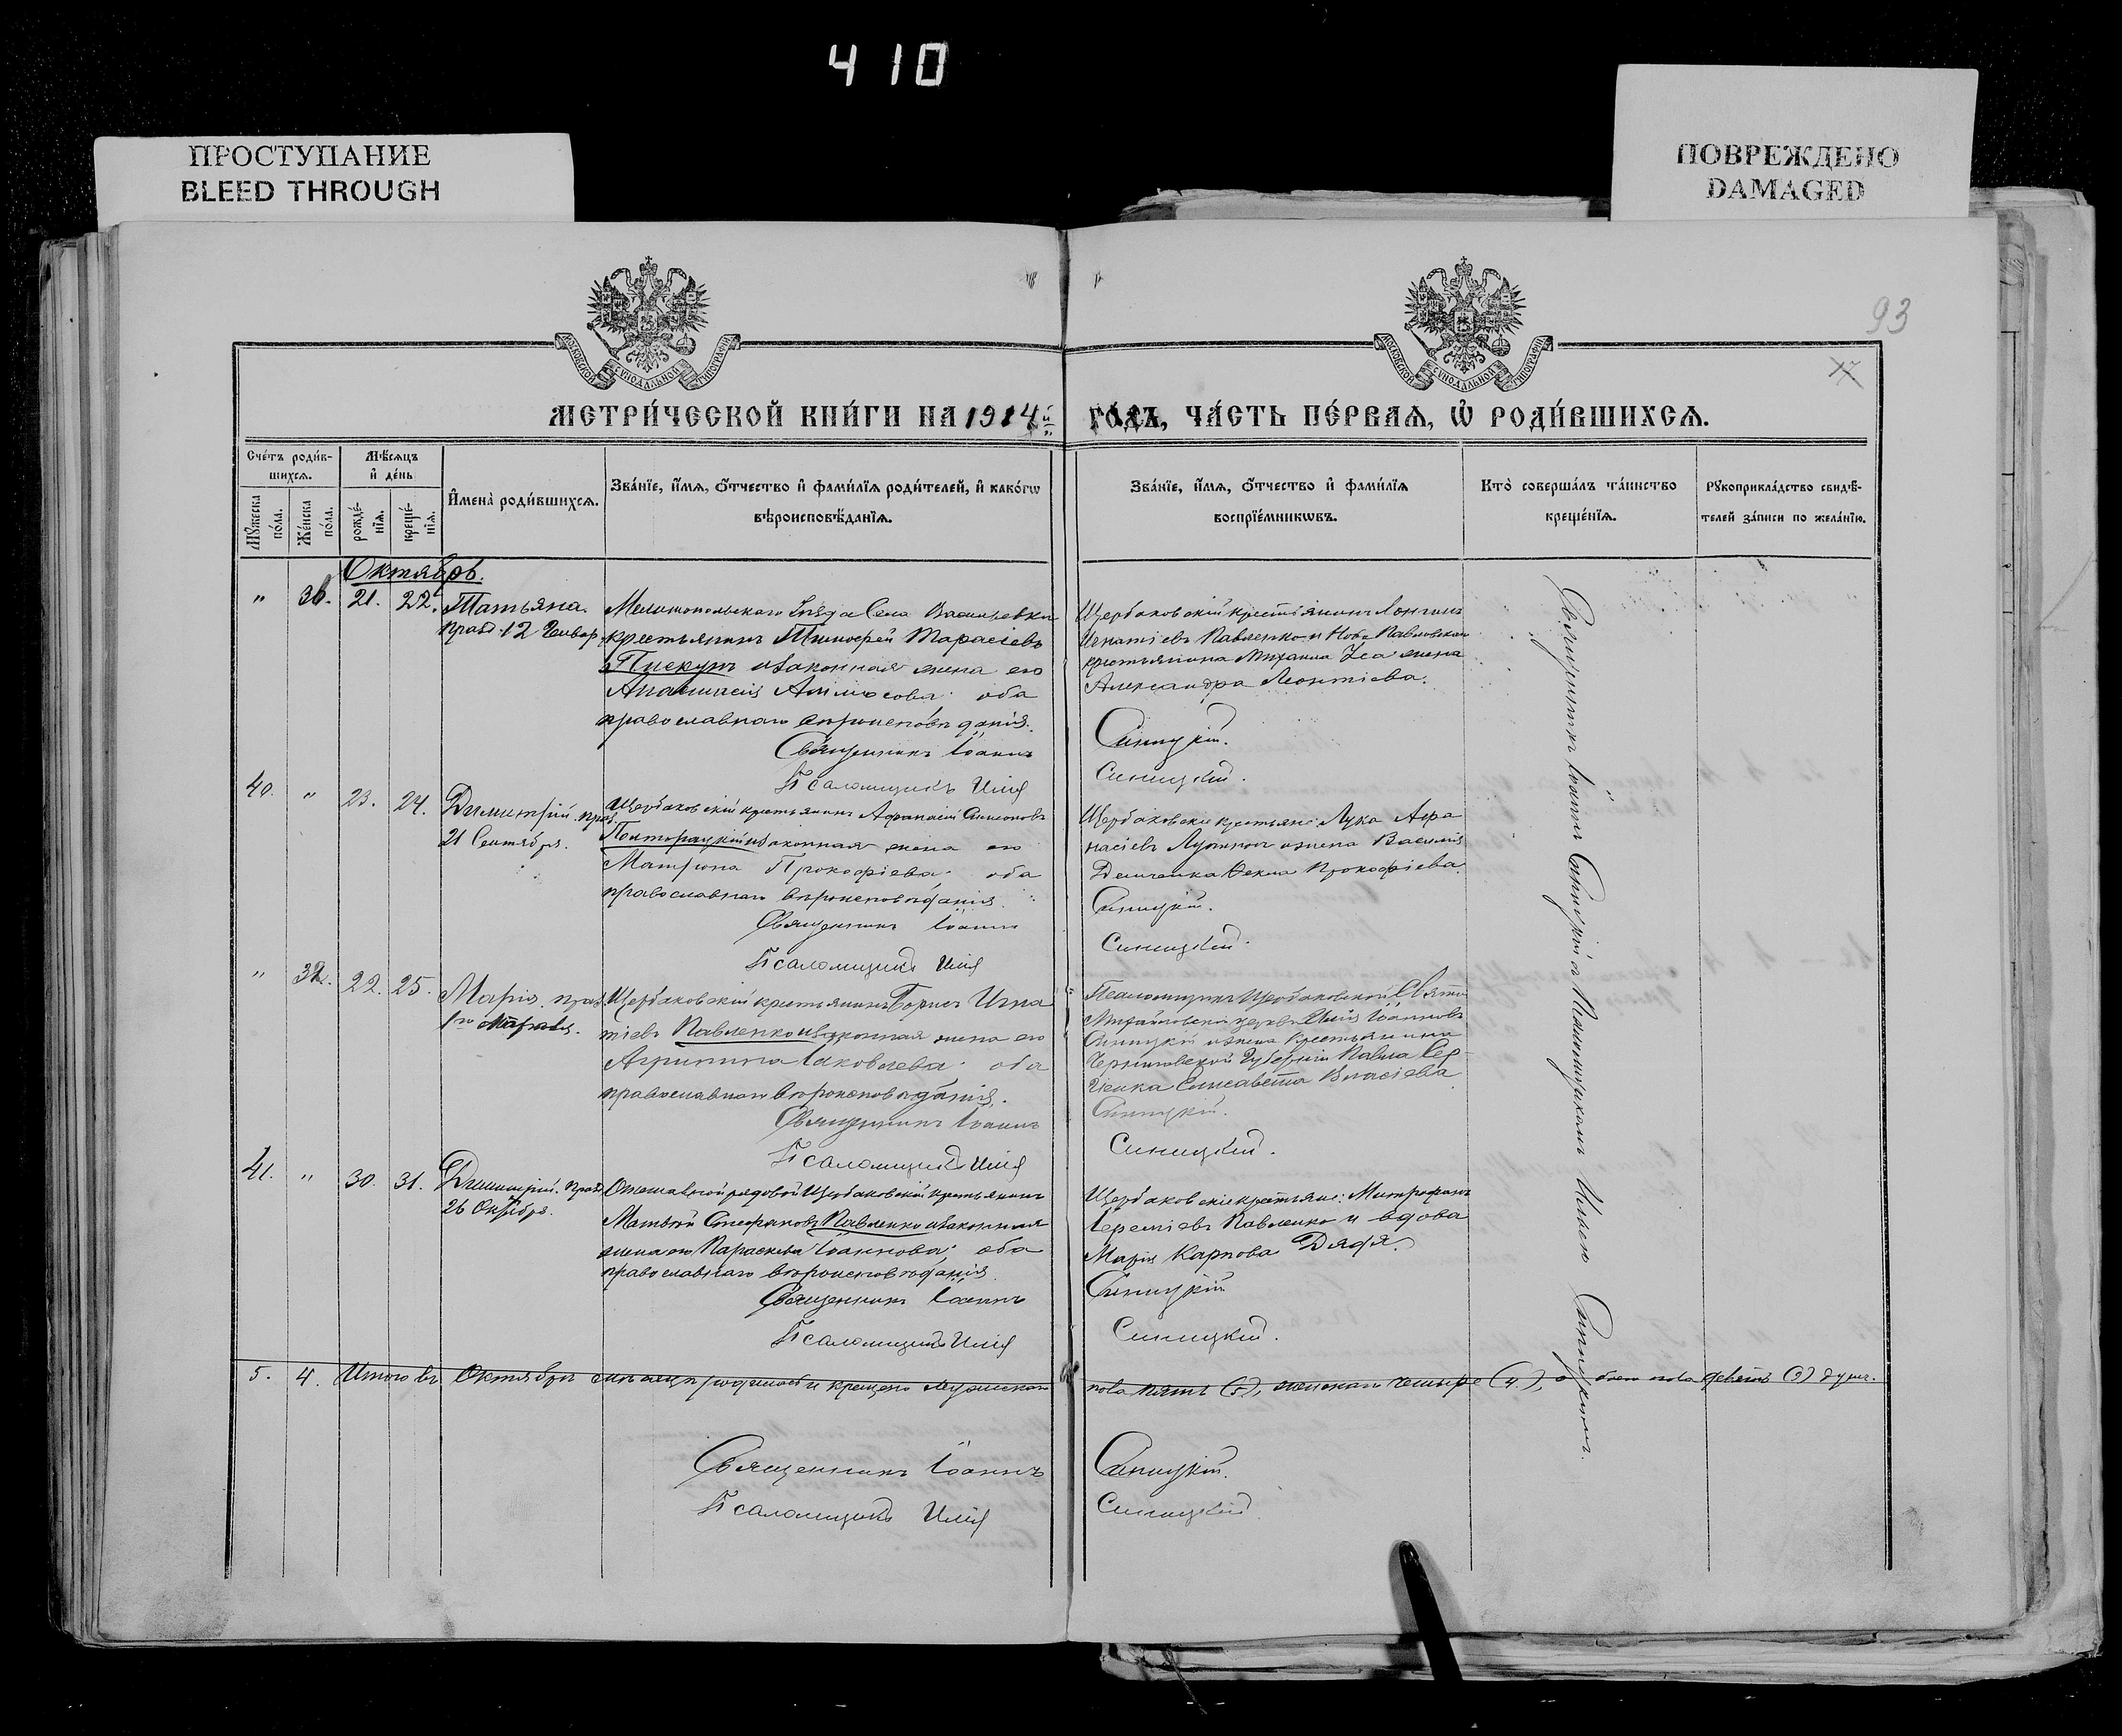 410
ПРОСТУПАНИЕ
BLEED THROUGH
ПОВРЕЖДЕНО
DAMAGED
93
МОСКОВСКОЙ СѴНОДАЛЬНОЙ ТИПОГРАФІИ
МОСКОВСКОЙ СѴНОДАЛЬНОЙ ТИПОГРАФІИ
МЕТРИ́ЧЕСКОЙ КНИ́ГИ НА 1914й
ГО́ДЪ, ЧА́СТЬ ПЕ́РВАѦ, Ѡ҆ РОДИ́ВШИХСѦ.
Сче́тъ роди́в-
шихсѧ.
Мѣ́сѧцъ
и҆ де́нь
Мꙋ́жеска по́ла.
Же́нска по́ла.
рожде́-нїѧ.
креще́-нїѧ.
И҆мена̀ роди́вшихсѧ.
Зва́нїе, и҆́мѧ, ѻ҆́тчество и҆ фами́лїѧ роди́телей, и҆ како́гѡ
вѣроисповѣ́данїѧ.
Зва́нїе, и҆́мѧ, ѻ҆́тчество и҆ фами́лїѧ
воспрїе́мникѡвъ.
Кто̀ соверша́лъ та́инство
креще́нїѧ.
Рꙋкоприкла́дство свидѣ́-
телей за́писи по жела́нїю.
Октябрь.
" 36. 21. 22. Татьяна.
празд. 12 Генвар.
Мелитопольскаго Уѣзда Села Васильевки
крестьянинъ Тимофей Тарасіевъ
и законная жена его
Анастасія оба
православнаго вѣроисповѣданія.
Священникъ Іоаннъ
Псаломщикъ Илія
Щербаковскій крестьянинъ Лонгинъ
Игнатіевъ Павленко и Ново Павловскаго
крестьянина Михаила жена
Александра Леонтіева.
Синицкій.
Синицкій.
40. " 23. 24. Димитрій. праз.
21 Сентября.
Щербаковскій крестьянинъ Афанасій Симеоновъ
Полторацкій и законная жена его
Матрона Прокофіева оба
православнаго вѣроисповѣданія.
Священникъ Іоаннъ
Псаломщикъ Илія
Щербаковскіе крестьяне: Лука Афа
насіевъ и жена Василія
Демченка Ѳекла Прокофіева.
Синицкій.
Синицкій.
" 22. 25. Марія. праз.
1го
Щербаковскій крестьянинъ Борисъ Игна
тіевъ Павленко и законная жена его
Агрипина Іаковлева оба
православнаго вѣроисповѣданія.
Священникъ Іоаннъ
Псаломщикъ Илія
Псаломщикъ Щербаковской Свято
Михайловской церкви Илія Іоанновъ
Синицкій и жена крестьянина
Черниговской Губерніи Павла Сер
гіенка Елисавета Власіева
Синицкій.
Синицкій.
41. " 30. 31. Димитрій. праз.
26 Октября.
Отставной рядовой Щербаковскій крестьянинъ
Матвѣй Стефановъ Павленко и законная
жена его Параскева Іоаннова; оба
православнаго вѣроисповѣданія.
Священникъ Іоаннъ
Псаломщикъ Илія
Щербаковскіе крестьяне: Митрофанъ
Іереміевъ Павленко и вдова
Марія Карпова Дядя.
Синицкій.
Синицкій.
Священникъ Іоаннъ Синицкій съ Псаломщикомъ Иліею Синицкимъ.
5. 4. Итого въ Октябрѣ мѣсяцѣ родилось и крещено мужескаго
пола пять (5), женскаго четыре (4), обоего пола девять (9) душъ.
Священникъ Іоаннъ
Синицкій.
Псаломщикъ Илія
Синицкій